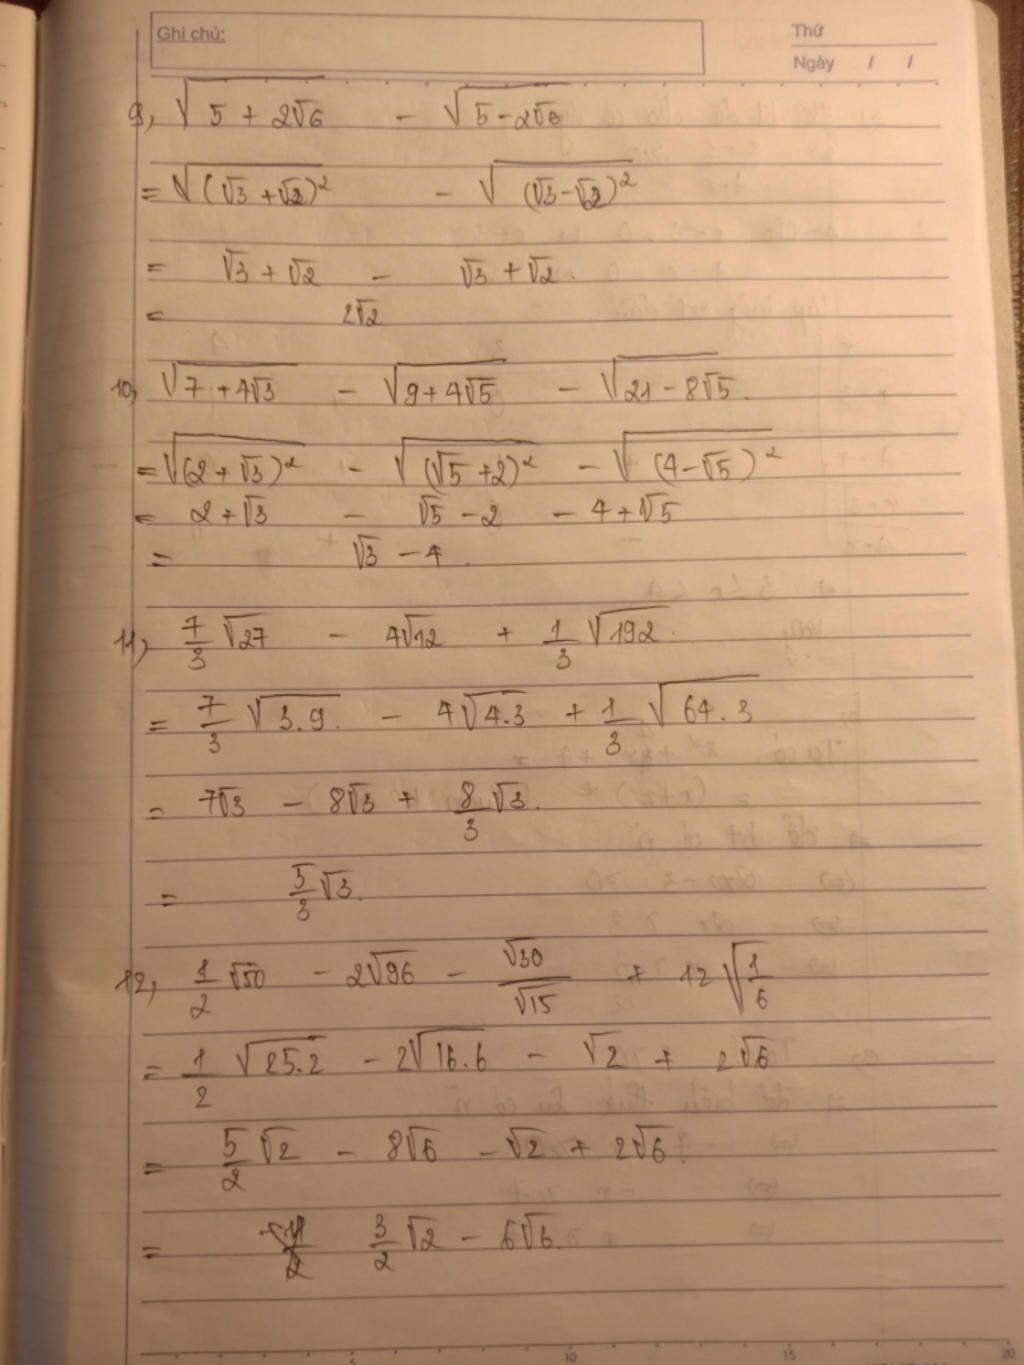 Ghi chú:
Thứ
Ngày / /
9, √(5 + 2√6) - √(5 - 2√6)
= √((√3 + √2)²) - √((√3 - √2)²)
= √3 + √2 - √3 + √2.
= 2√2
10, √(7 + 4√3) - √(9 + 4√5) - √(21 - 8√5).
= √((2 + √3)²) - √((√5 + 2)²) - √((4 - √5)²)
= 2 + √3 - √5 - 2 - 4 + √5
= √3 - 4.
11, 7/3 √27 - 4√12 + 1/3 √192.
= 7/3 √(3.9.) - 4√(4.3) + 1/3 √(64.3)
= 7√3 - 8√3 + 8/3 √3.
= 5/3 √3.
12, 1/2 √50 - 2√96 - √30/√15 + 12√(1/6)
= 1/2 √(25.2) - 2√(16.6) - √2 + 2√6
= 5/2 √2 - 8√6 - √2 + 2√6.
= 3/2 √2 - 6√6.
5 10 15 20